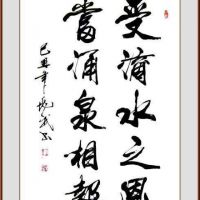 受滴水之恩
當涌泉相報
己丑年